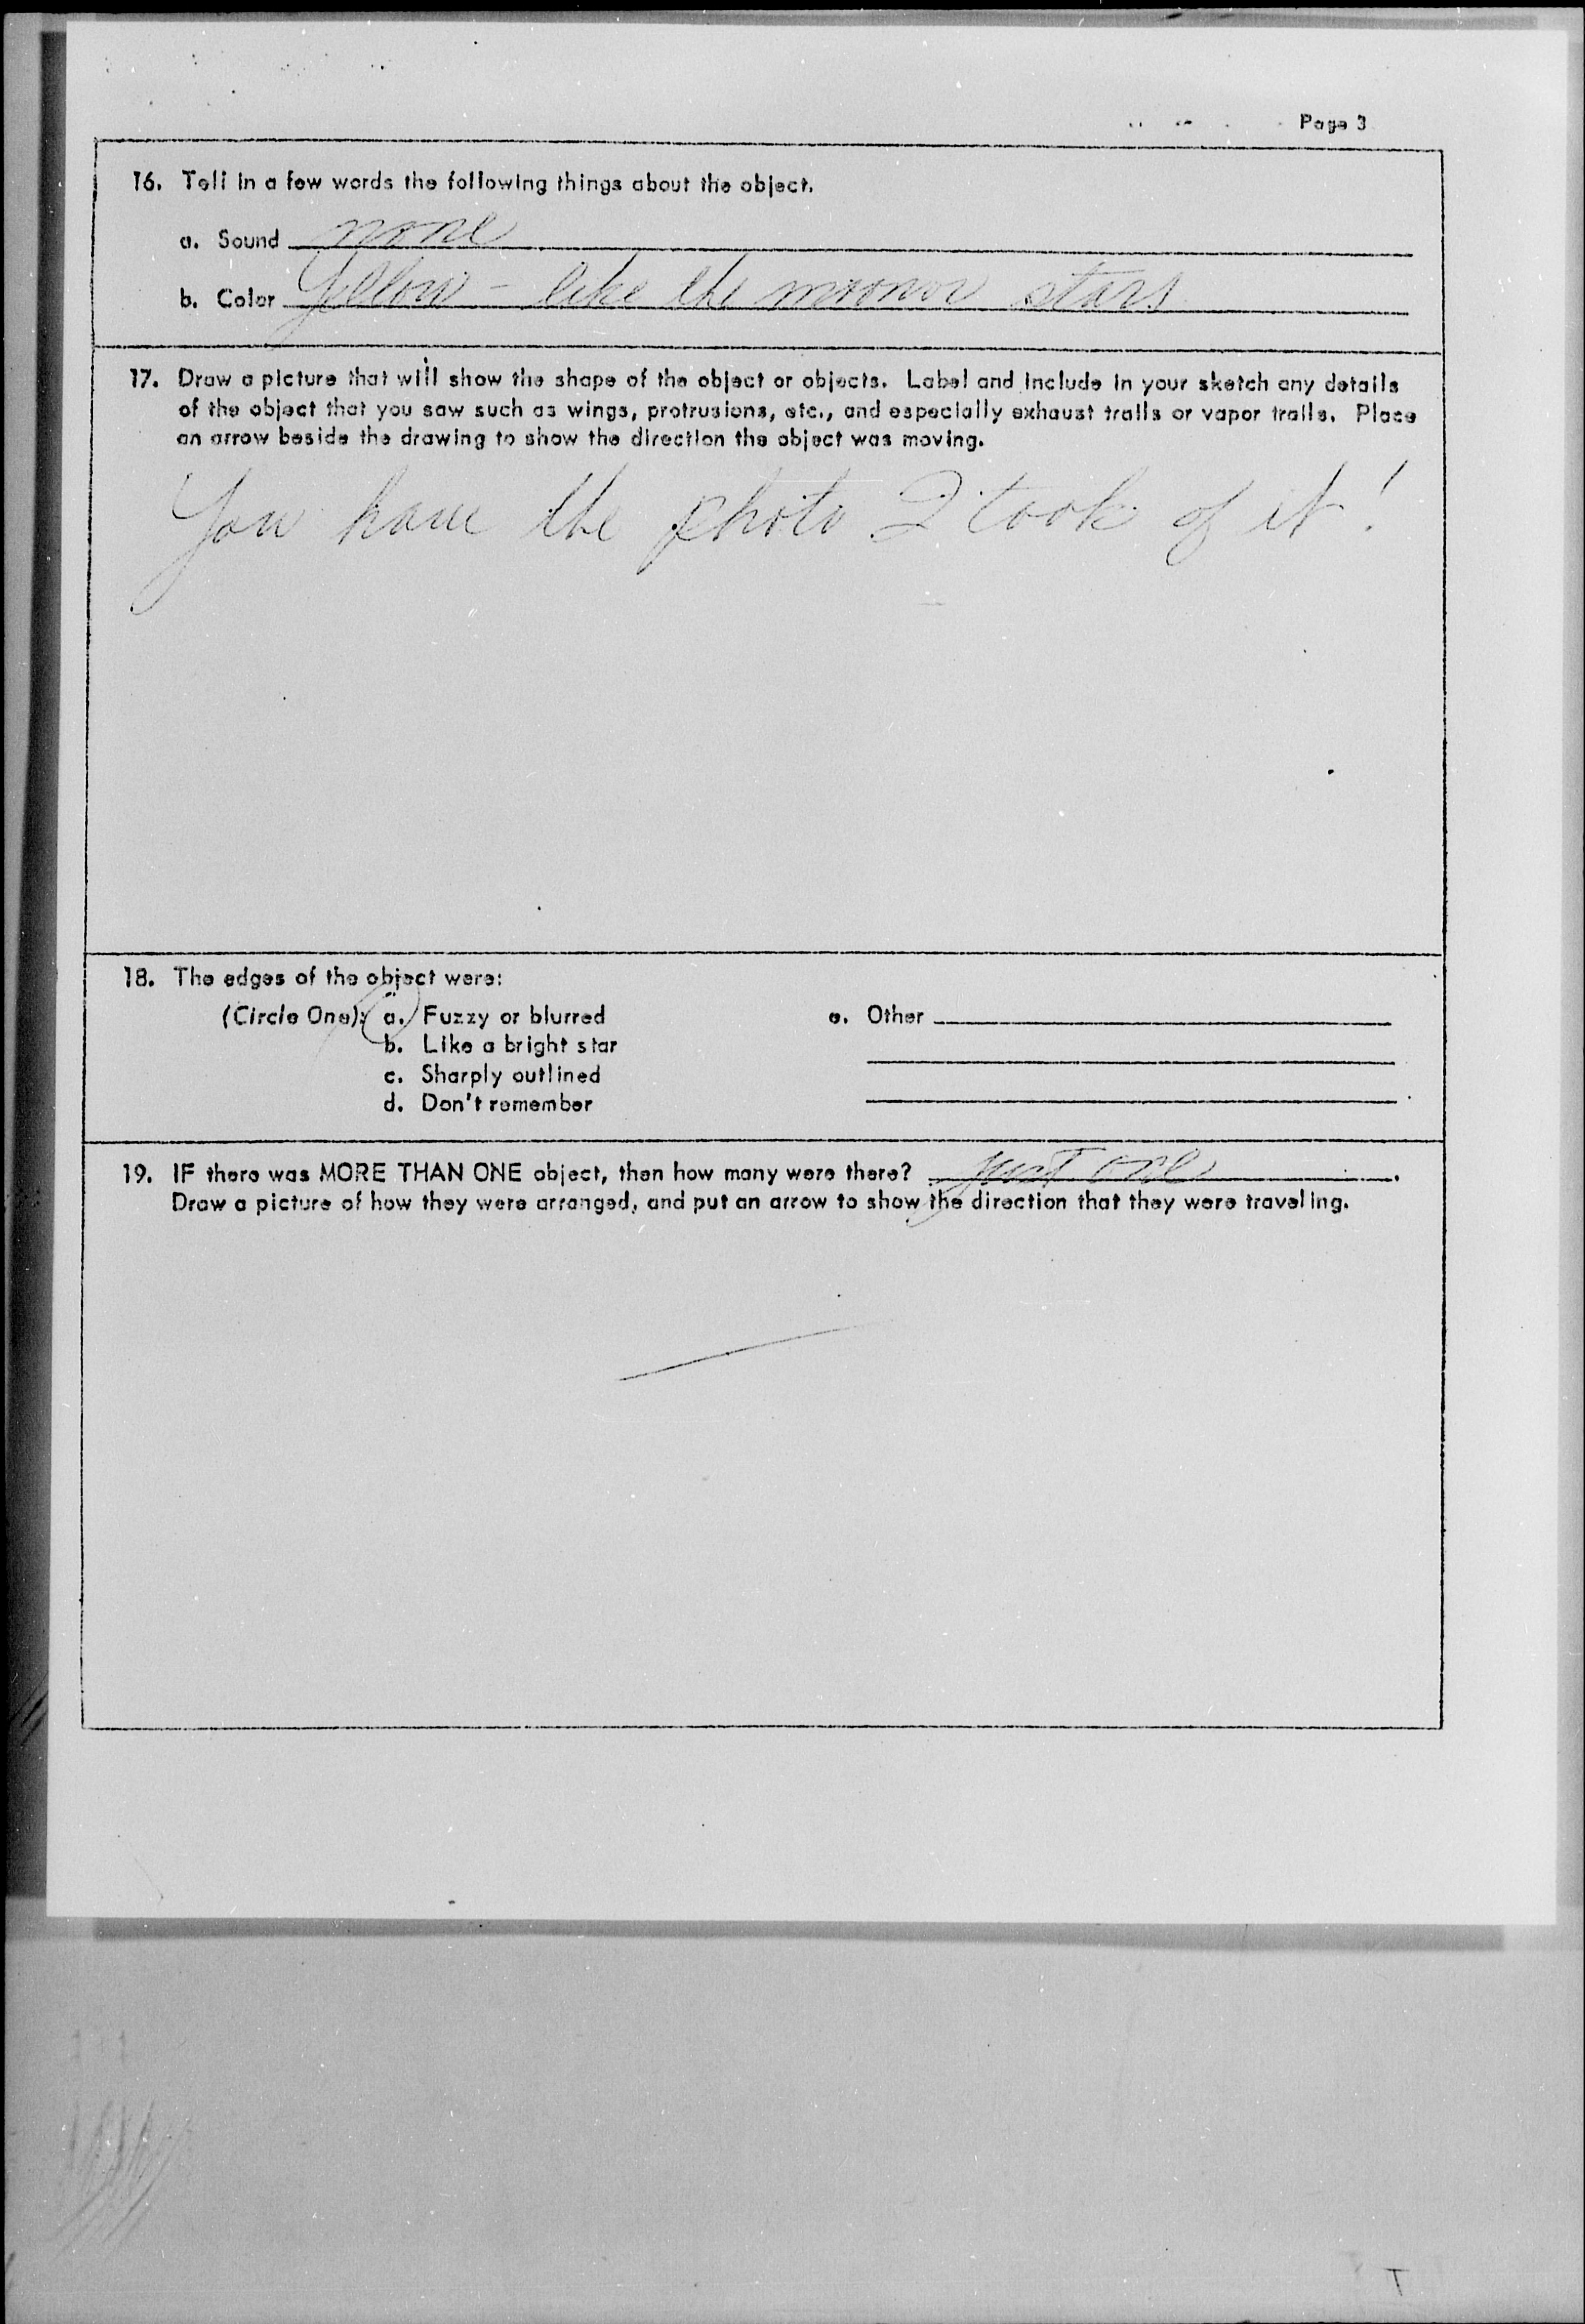 Page 3
16. Tell in a few words the following things about the object.
a. Sound none
b. Color Yellow - like the moon or stars
17. Draw a picture that will show the shape of the object or objects. Label and include in your sketch any details
of the object that you saw such as wings, protrusions, etc., and especially exhaust trails or vapor trails. Place
an arrow beside the drawing to show the direction the object was moving.
You have the photo I took of it!
18. The edges of the object were:
(Circle One): a. Fuzzy or blurred
b. Like a bright star
c. Sharply outlined
d. Don't remember
e. Other
19. IF there was MORE THAN ONE object, then how many were there? just one.
Draw a picture of how they were arranged, and put an arrow to show the direction that they were traveling.
T